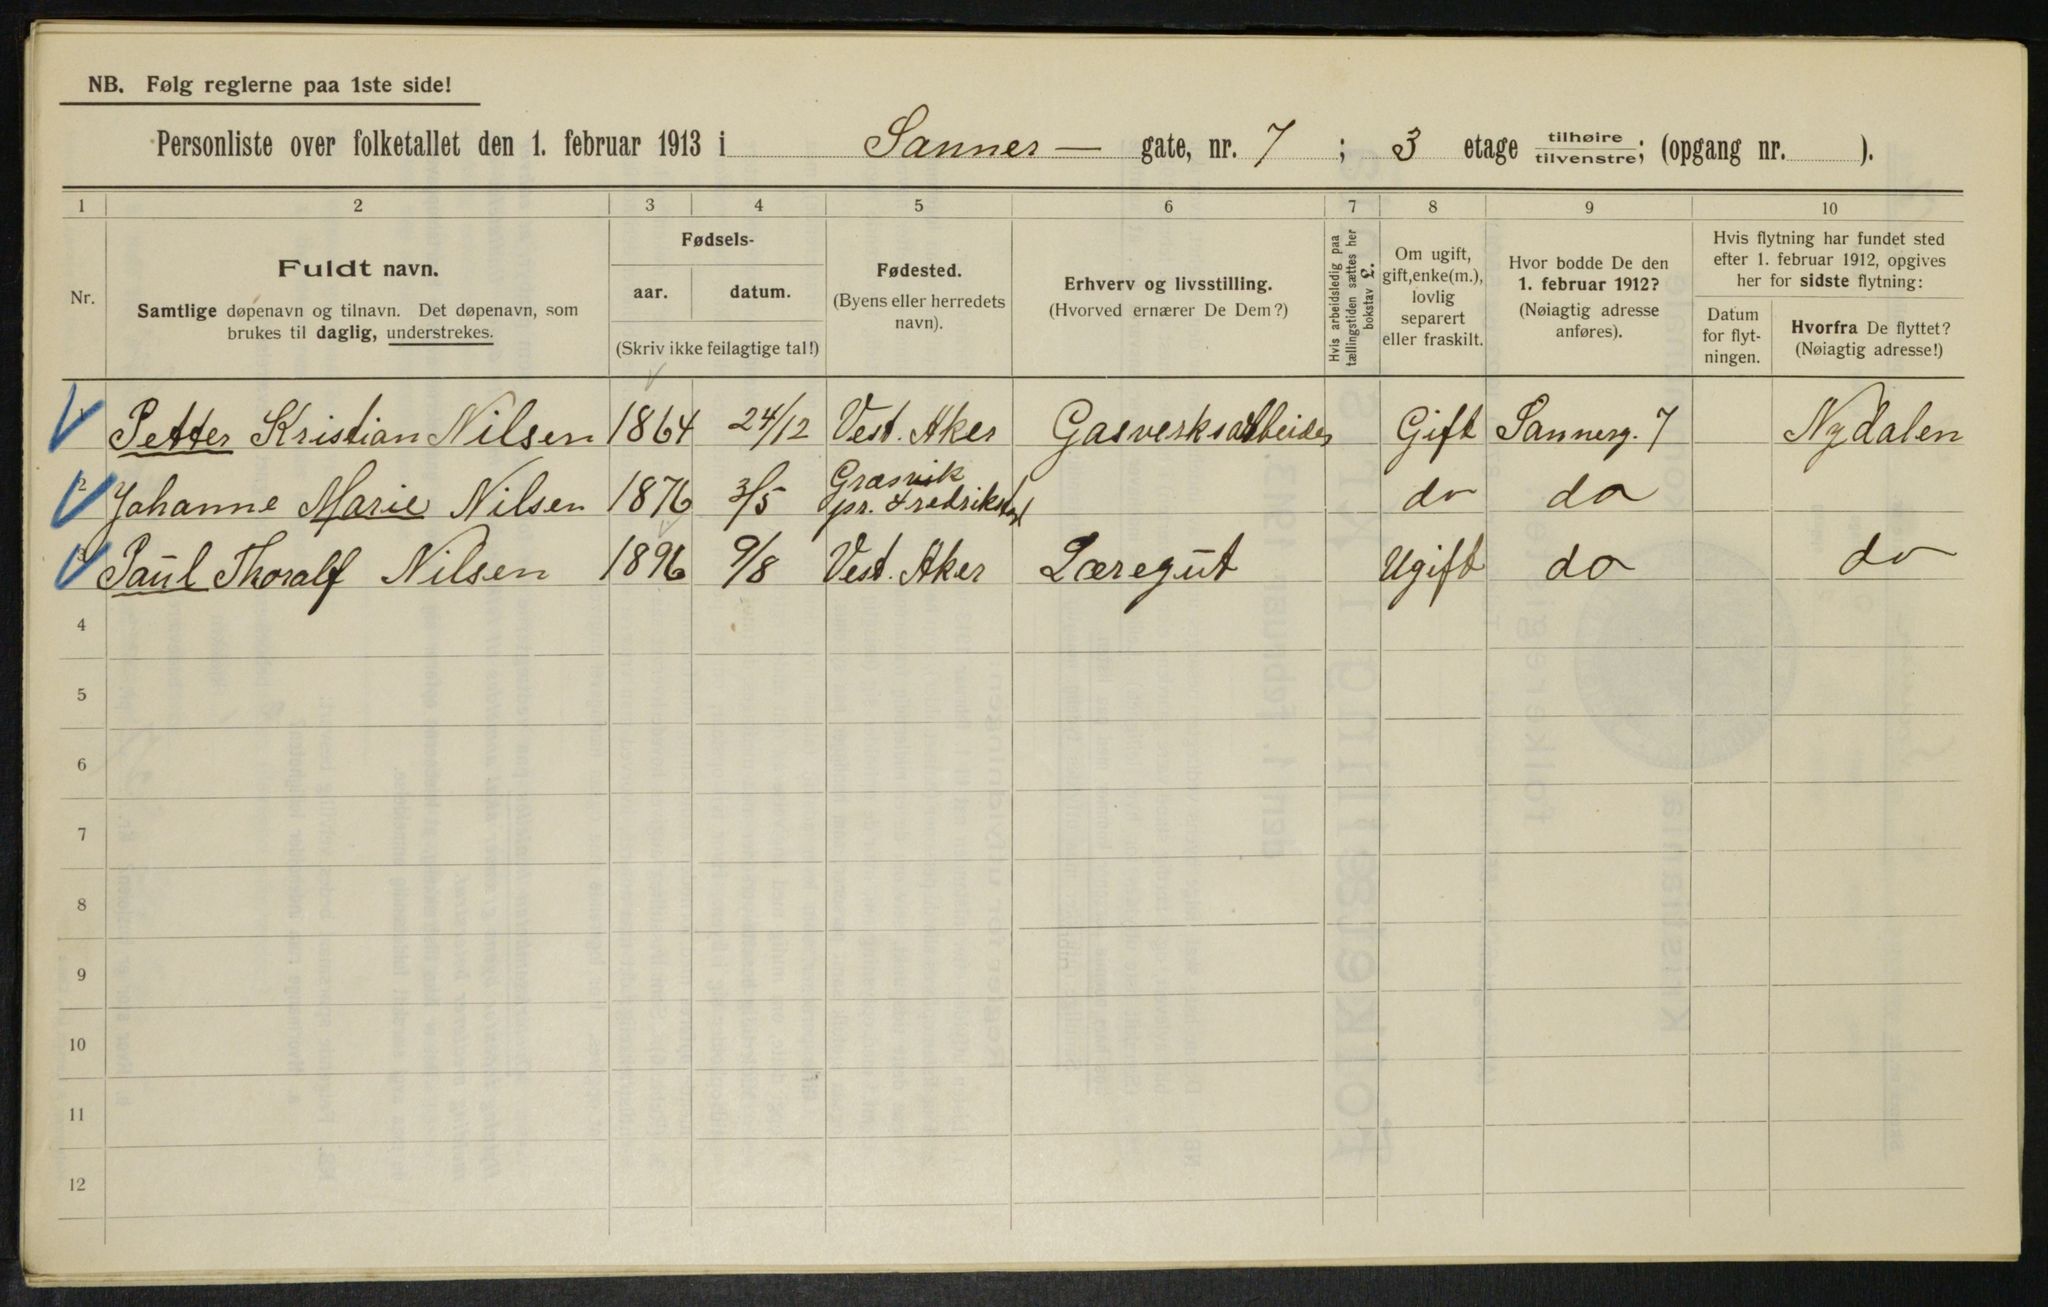 NB. Følg reglerne paa 1ste side!
Personliste over folketallet den 1. februar 1913 i Sannes— gate, nr. 7 ; 3 etage tilhøire / tilvenstre; (opgang nr. ).
1 2 3 4 5 6 7 8 9 10
Nr.
Fuldt navn.
Samtlige døpenavn og tilnavn. Det døpenavn, som
brukes til daglig, understrekes.
Fødsels-
aar. datum.
(Skriv ikke feilagtige tal!)
Fødested.
(Byens eller herredets
navn).
Erhverv og livsstilling.
(Hvorved ernærer De Dem?)
Hvis arbeidsledig paa
tællingstiden sættes her
bokstav L.
Om ugift,
gift, enke(m.),
lovlig
separert
eller fraskilt.
Hvor bodde De den
1. februar 1912?
(Nøiagtig adresse
anføres).
Hvis flytning har fundet sted
efter 1. februar 1912, opgives
her for sidste flytning:
Datum
for flyt-
ningen.
Hvorfra De flyttet?
(Nøiagtig adresse!)
1 Petter Kristian Nilsen 1864 24/12 Vest. Aker Gasverksarbeider Gift Sannerg. 7 Nydalen
2 Johanne Marie Nilsen 1876 3/5 Græsvik pr. Fredrikstad do do
3 Paul Thoralf Nilsen 1896 9/8 Vest. Aker Læregut Ugift do do
4
5
6
7
8
9
10
11
12